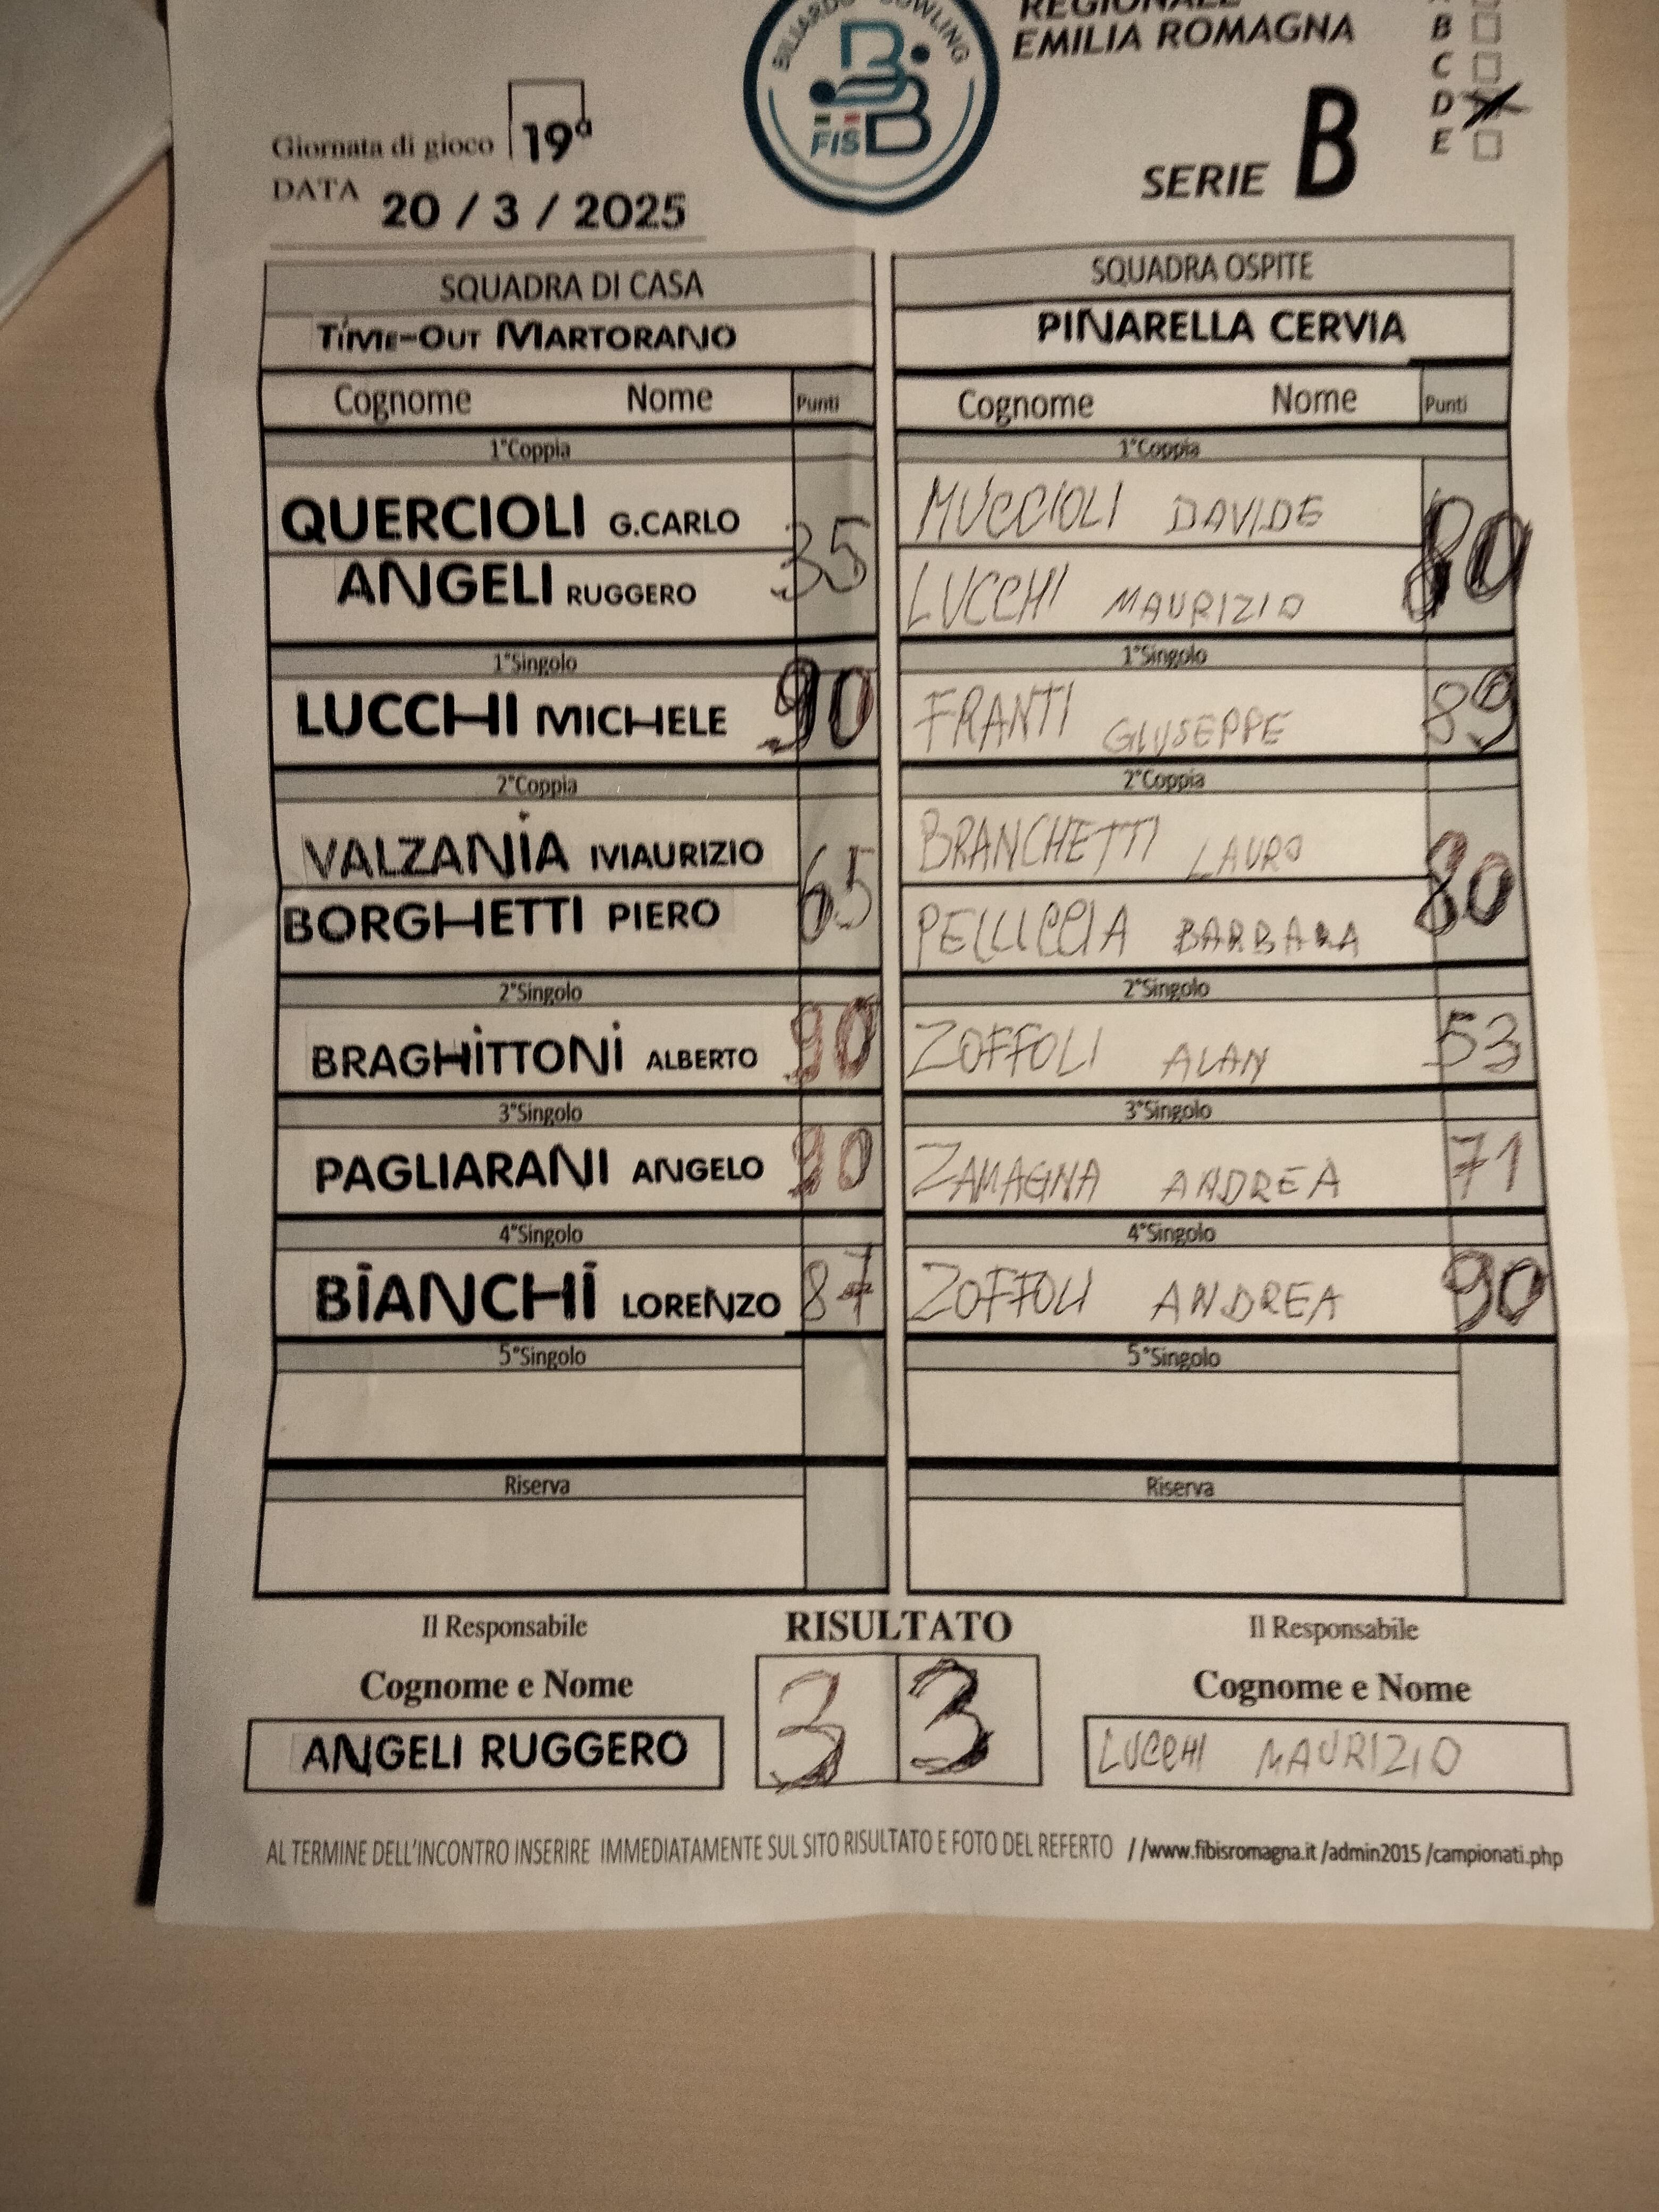 REGIONALE
EMILIA ROMAGNA
BILIARDO BOWLING
FISBB
B
C
D
E
Giornata di gioco 19ª
DATA 20 / 3 / 2025
SERIE B
SQUADRA DI CASA SQUADRA OSPITE
TIME-OUT MARTORANO PINARELLA CERVIA
Cognome Nome Punti Cognome Nome Punti
1°Coppia 1°Coppia
QUERCIOLI G.CARLO 35 MUCCIOLI DAVIDE 80
ANGELI RUGGERO LUCCHI MAURIZIO
1°Singolo 1°Singolo
LUCCHI MICHELE 90 FRANTI GIUSEPPE 89
2°Coppia 2°Coppia
VALZANIA MAURIZIO 65 BRANCHETTI LAURO 80
BORGHETTI PIERO PELLICCIA BARBARA
2°Singolo 2°Singolo
BRAGHITTONI ALBERTO 90 ZOFFOLI ALAN 53
3°Singolo 3°Singolo
PAGLIARANI ANGELO 90 ZAMAGNA ANDREA 71
4°Singolo 4°Singolo
BIANCHI LORENZO 87 ZOFFOLI ANDREA 90
5°Singolo 5°Singolo
Riserva Riserva
Il Responsabile RISULTATO Il Responsabile
Cognome e Nome 3 3 Cognome e Nome
ANGELI RUGGERO LUCCHI MAURIZIO
AL TERMINE DELL'INCONTRO INSERIRE IMMEDIATAMENTE SUL SITO RISULTATO E FOTO DEL REFERTO //www.fibisromagna.it /admin2015 /campionati.php